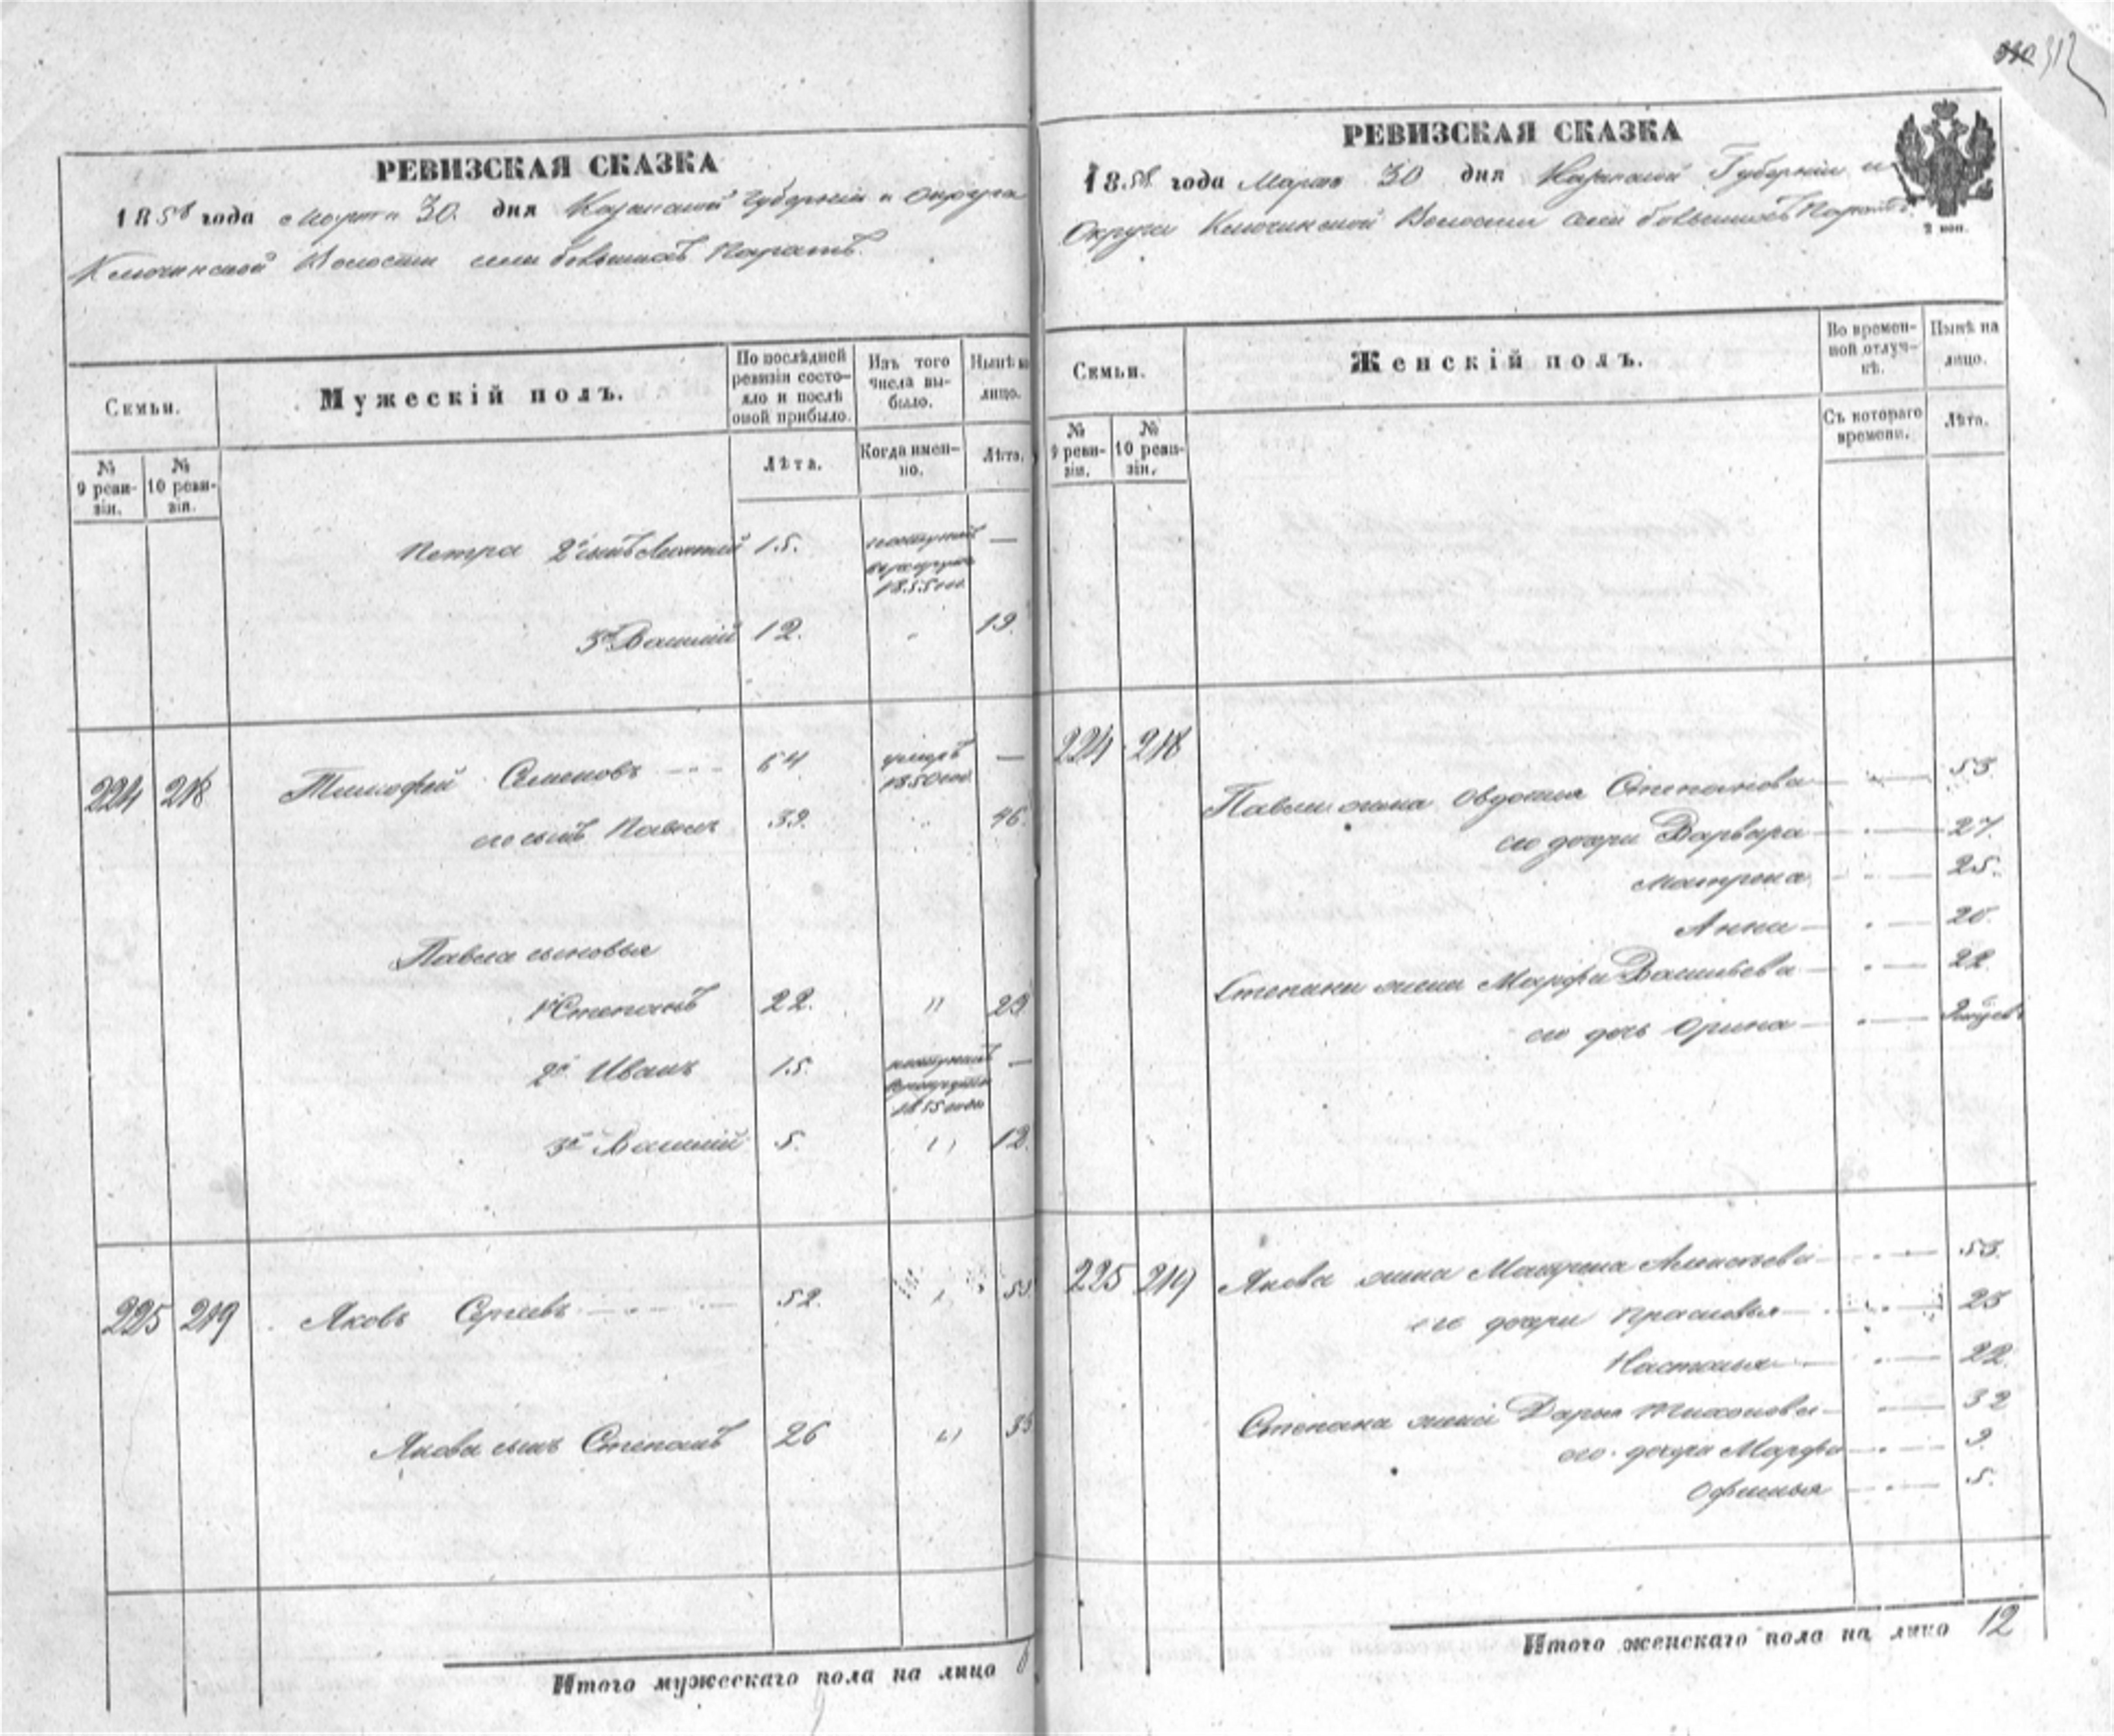 312
РЕВИЗСКАЯ СКАЗКА
1858 года Марта 30 дня Казанской Губерніи и Округа
Ключинской Волости села большихъ Паратъ.
Семьи.
Мужескій полъ.
По послѣдней ревизіи состояло и послѣ оной прибыло.
Изъ того числа выбыло.
Нынѣ на лицо.
№ 9 ревизіи.
№ 10 ревизіи.
Лѣта.
Когда именно.
Лѣта.
Петра 2й сынъ 15. поступилъ в рекруты 1855 —
3й Василій 12. 19.
224 218 Тимофей Семеновъ 64 умеръ 1850 —
его сынъ Павелъ 39. 46.
Павла сыновья
1й Степанъ 22. " 29
2й Иванъ 15. поступилъ в рекруты —
3й Василій 5. " 12.
225 219 Яковъ Сергеевъ 52.
Якова сынъ Степанъ 26 " 33
Итого мужескаго пола на лицо 6
РЕВИЗСКАЯ СКАЗКА
1858 года Марта 30 дня Казанской Губерніи и
Округи Ключинской Волости села большихъ Паратъ.
2 коп.
Семьи.
Женскій полъ.
Во временной отлучкѣ.
Нынѣ на лицо.
№ 9 ревизіи.
№ 10 ревизіи.
Съ котораго времени.
Лѣта.
224 218
Павла жена Овдотья Степанова — 53.
его дочери Варвара — 27.
Матрена — 25.
Анна — 20.
Степана жена Марфа Васильева — 22.
его дочь Орина —
225 219 Якова жена Алексеева — 53.
его дочери Прасковья — 25
Настасья — 22.
Степана жена Дарья Тихонова — 32
его дочери Марфа — 9.
Офимья — 5.
Итого женскаго пола на лицо 12